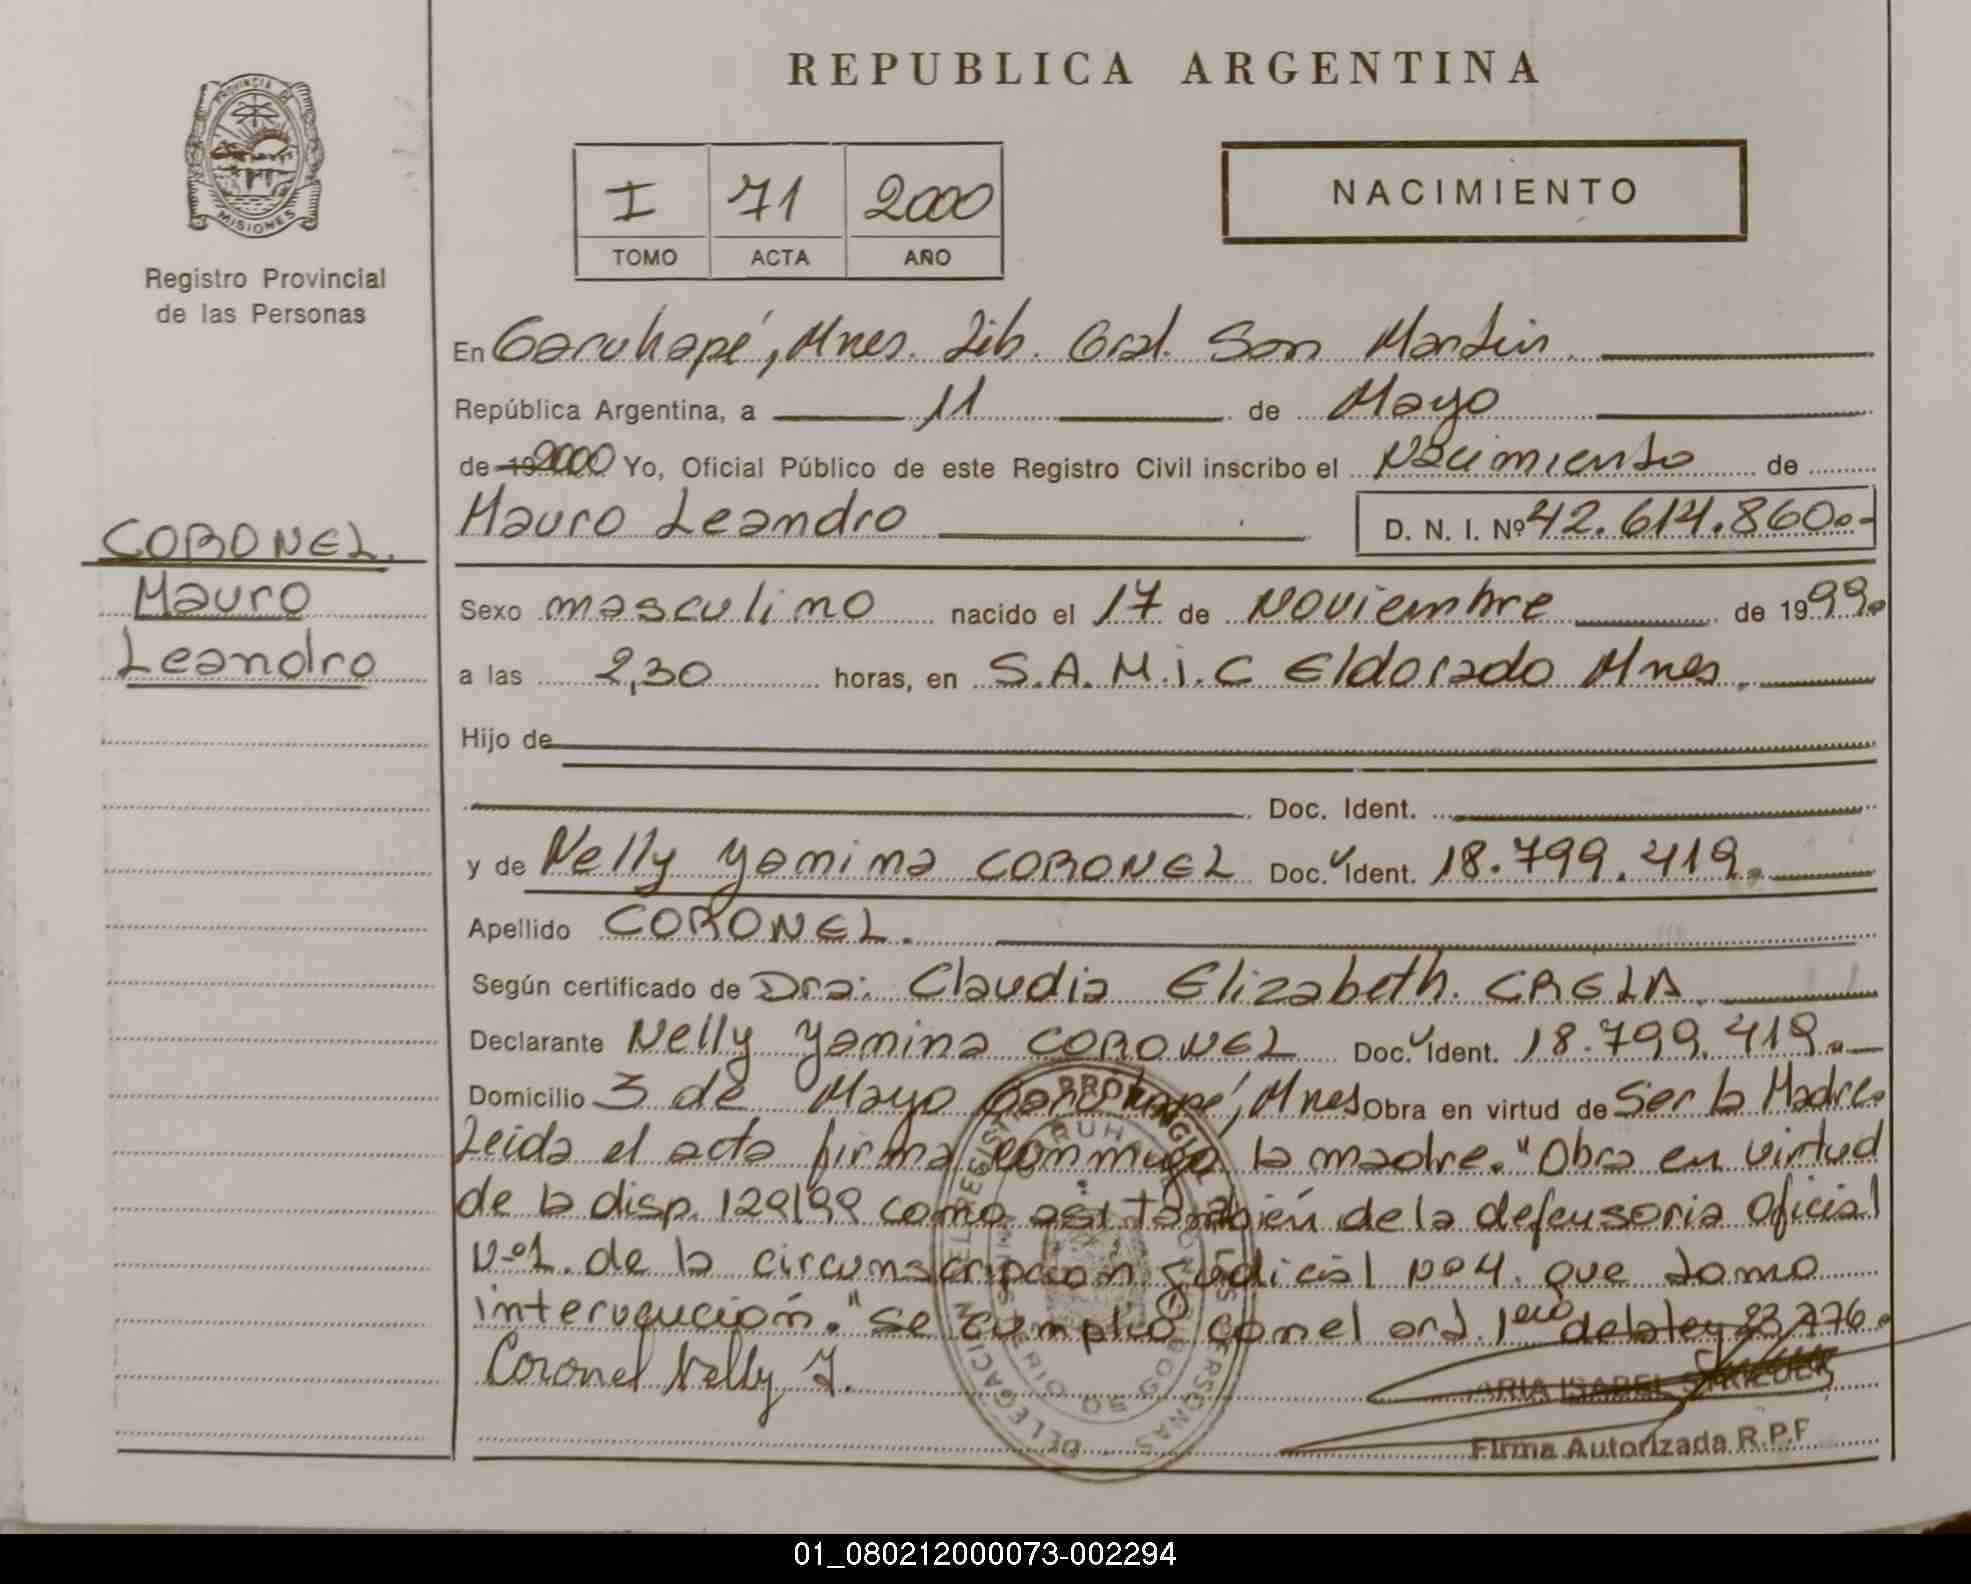 REPUBLICA ARGENTINA
PROVINCIA DE
MISIONES
Registro Provincial
de las Personas
I 71 2000
TOMO ACTA AÑO
NACIMIENTO
En Garuhapé, Mnes. Lib. Gral. San Martin
República Argentina, a 11 de Mayo
de 19 2000 Yo, Oficial Público de este Registro Civil inscribo el Nacimiento de
Mauro Leandro D. N. I. Nº 42.614.860.-
CORONEL.
Mauro
Leandro
Sexo masculino nacido el 17 de Noviembre de 1999.
a las 2,30 horas, en S.A.M.i.C Eldorado Mnes.
Hijo de
Doc. Ident.
y de Nelly Yamina CORONEL Doc. Ident. 18.799.419.
Apellido CORONEL.
Según certificado de Dra: Claudia Elizabeth. CRELA.
Declarante Nelly Yamina CORONEL Doc. Ident. 18.799.419.
Domicilio 3 de Mayo Garuhapé, Mnes Obra en virtud de Ser la Madre.
Leida el acta firma conmigo la madre. "Obra en virtud
de la disp. 129/99 como asi también de la defensoria Oficial
Nº1. de la circunscripcion judicial Nº4. que tomo
intervención." Se cumplio con el art. 1ero de la ley 23.776.
Coronel Nelly Y.
ARIA ISABEL
Firma Autorizada R.P.F
01_080212000073-002294